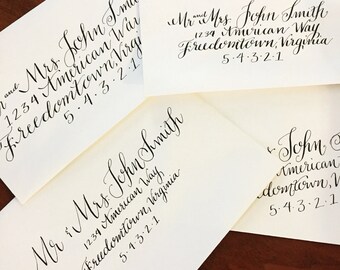 r and Mrs. John Smith
1234 American Way
Freedomtown, Virginia
5·4·3·2·1
Mr. and Mrs. John Smith
1234 American Way
Freedomtown, Virginia
5·4·3·2·1
Mr & Mrs. John Smith
1234 American Way
Freedomtown, Virginia
5·4·3·2·1
John S
American
Freedomtown, Vir
5·4·3·2·1